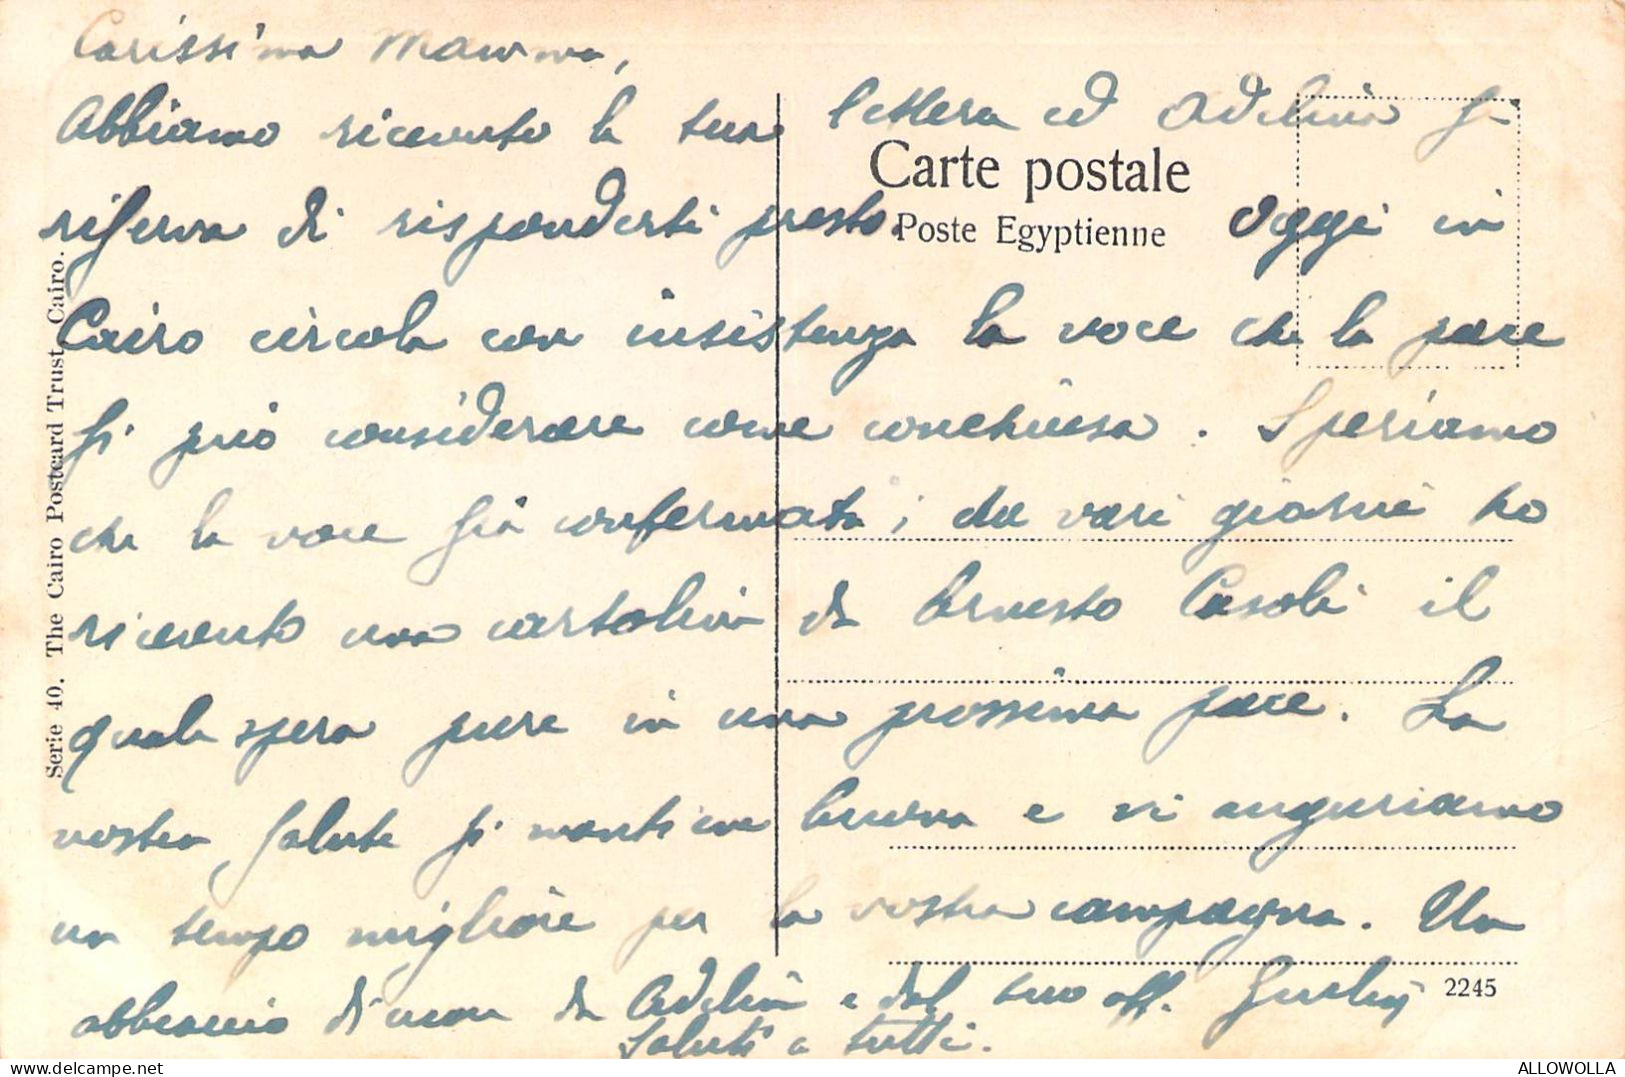 Carissima Mamma,
Abbiamo ricevuto la tua lettera ed Adelina si
Carte postale
riserva di risponderti presto. Oggi in
Poste Egyptienne
Cairo circola con insistenza la voce che la pace
si può considerare come conchiusa. Speriamo
che la voce sia confermata; da vari giorni ho
ricevuto una cartolina da Ernesto Casoli il
quale spera pure in una prossima pace. La
nostra salute si mantiene buona e vi auguriamo
un tempo migliore per la vostra campagna. Un
abbraccio di cuore da Adelina e dal tuo aff.
Saluti a tutti.
2245
Serie 40. The Cairo Postcard Trust Cairo.
ALLOWOLLA